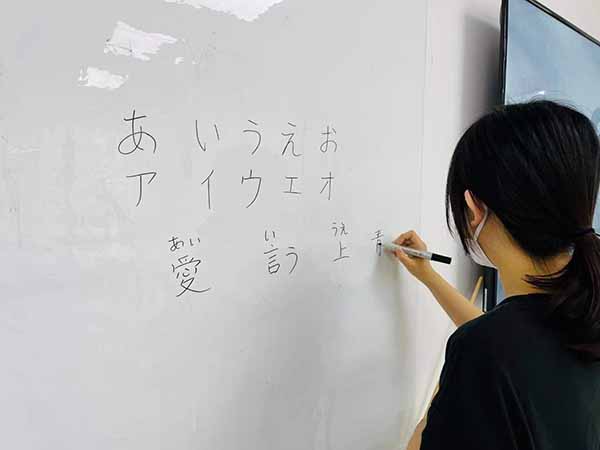 あいうえお
アイウエオ
あい い うえ
愛 言う 上 青